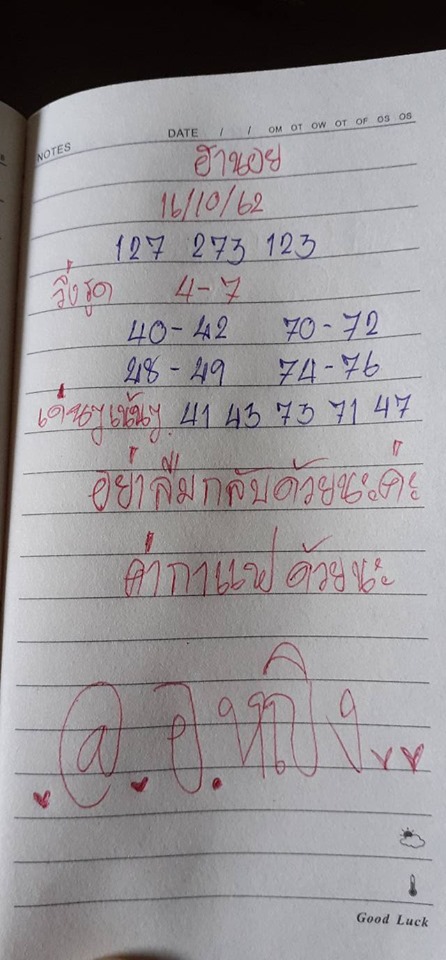 NOTES
DATE / / OM OT OW OT OF OS OS
ฮานอย
16/10/62
127 273 123
วิ่งรูด 4-7
40-42 70-72
48-49 74-76
เด่นๆเน้นๆ 41 43 73 71 47
อย่าลืมกลับด้วยนะค่ะ
ค่ากาแฟด้วยนะ
@.อ.หญิง
Good Luck